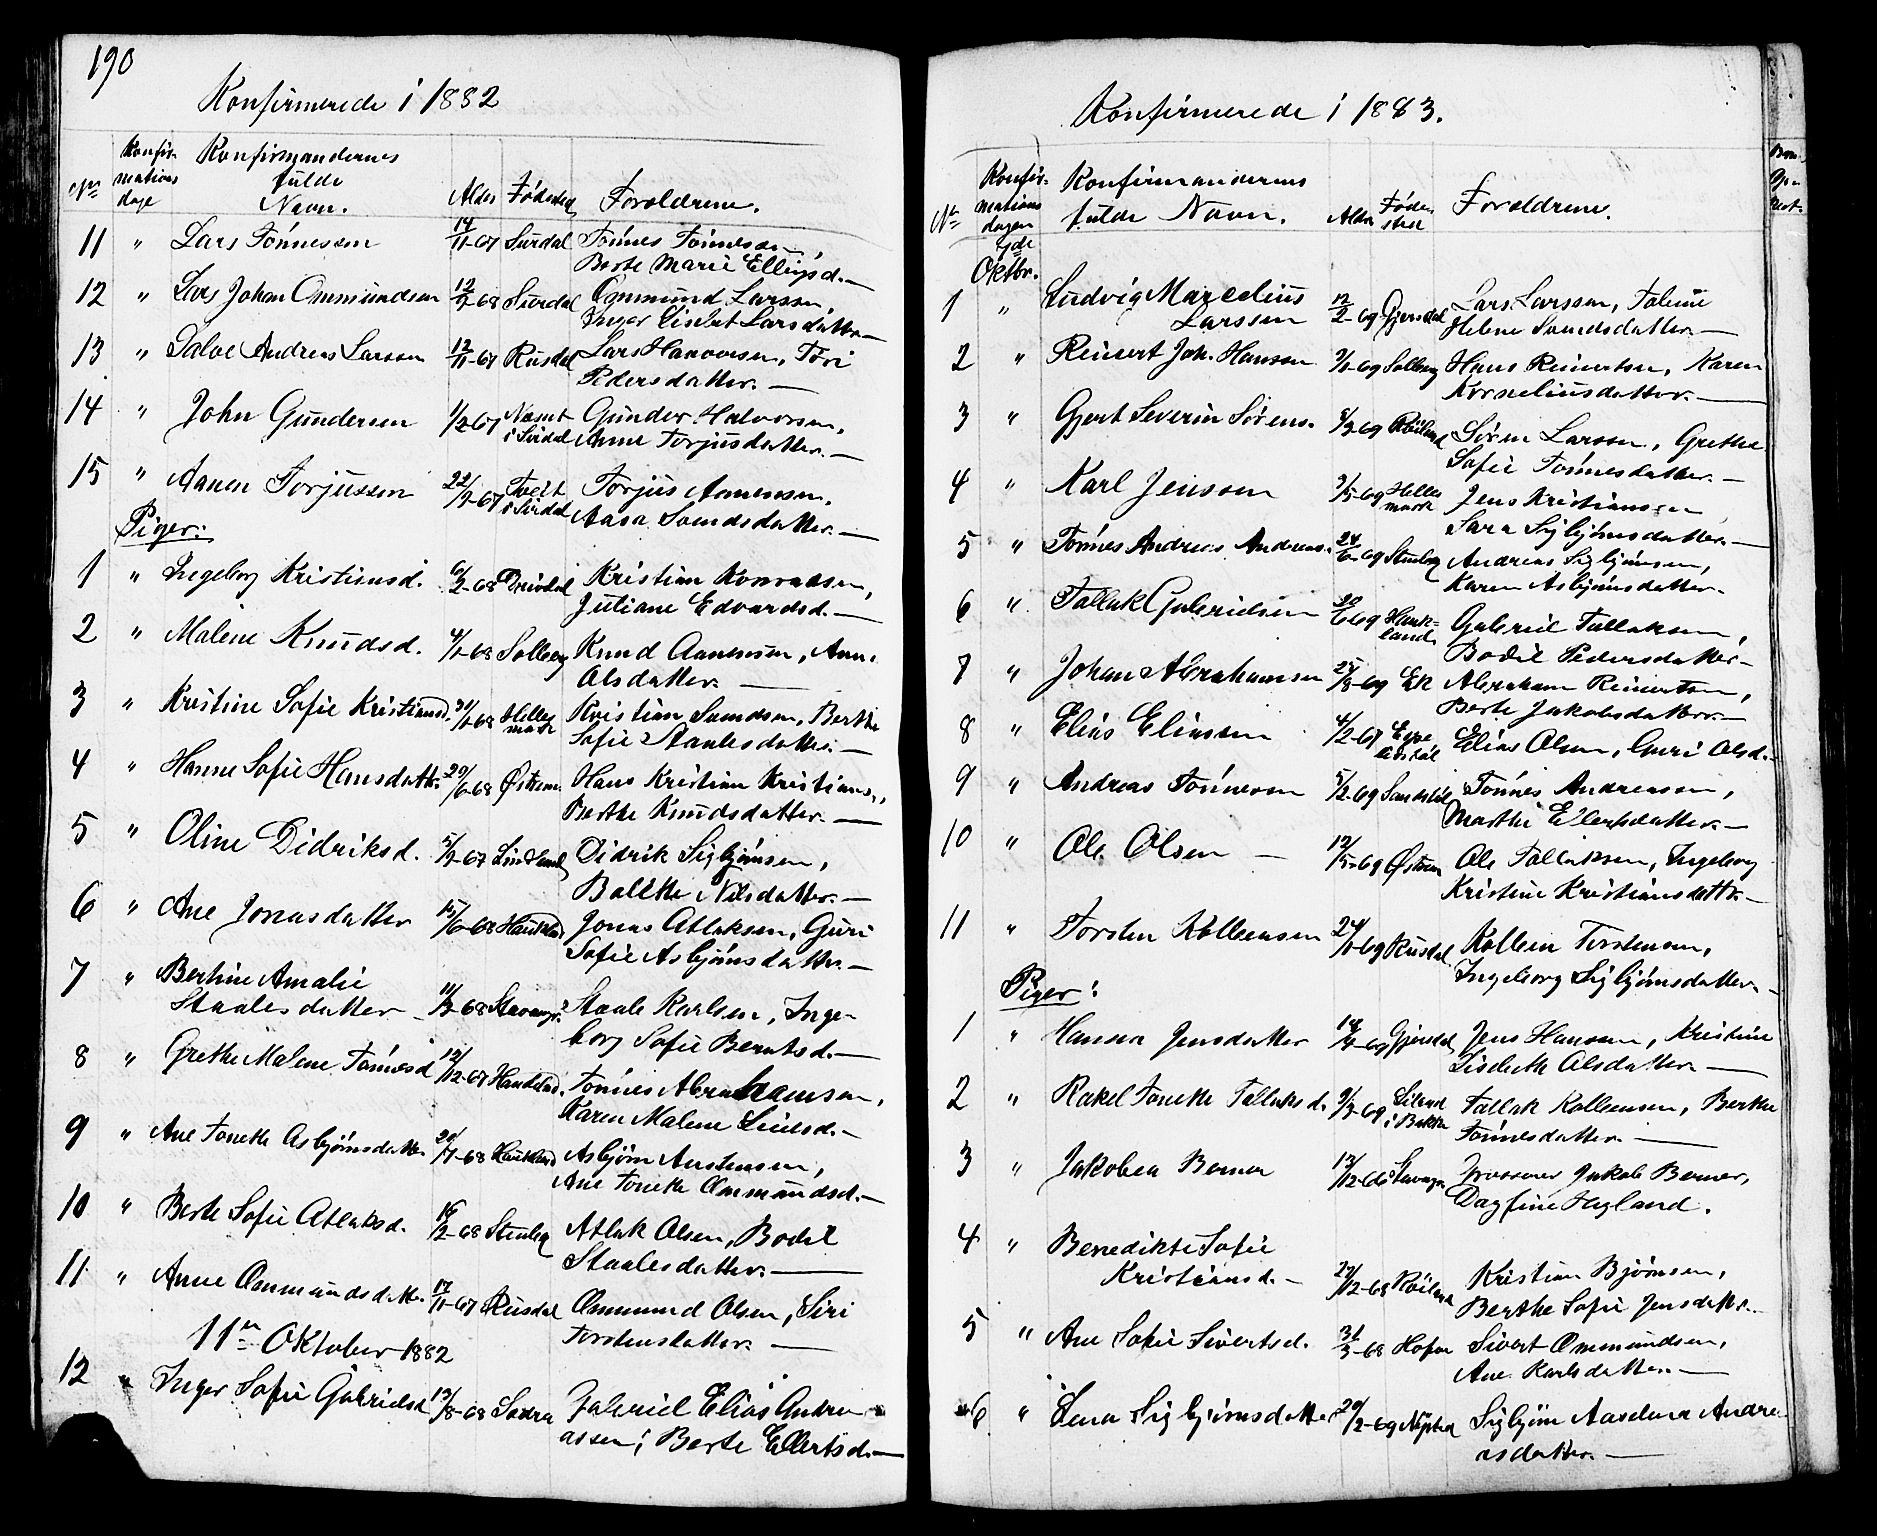 190
Konfirmerede i 1882
No Konfir- mations dage Konfirmandernes fulde Navn. Alder Fødested Forældrene.
11 " Lars Tönnessen 14/11-67 Surdal Tönnes Tönnessen,
Berte Marie Ellingsd. —
12 " Lars Johan Ommundsen 12/9-68 Surdal Ommund Larssen,
Inger Lisbet Larsdatter —
13 " Salve Andreas Larssen 12/11-67 Rusdal Lars Hanovesen, Tori
Pedersdatter. —
14 " John Gundersen 1/2-67 i Sirdal Gunder Halvorsen,
Anne Torjusdatter. —
15 " Aanen Torjussen 22/9-67 Tveit i Sirdal Torjus Aanensen,
Aasa Svendsdatter. —
Piger:
1 " Ingeborg Kristiansd. 6/2-68 Drivdal Kristian Konradsen,
Juliane Edvardsd. —
2 " Malene Knudsd. 4/1-68 Solberg Knud Aanensen, Anne
Olsdatter. —
3 " Kristine Sofie Kristiansd. 31/1-68 Helle- mark Kristian Svendsen, Berthe
Sofie Staalesdatter. —
4 " Hanne Sofie Hansdatter. 20/6-68 Østrem. Hans Kristian Kristians.,
Berthe Knudsdatter. —
5 " Oline Didriksd. 5/9-67 Lindland Didrik Sigbjörnsen,
Bolette Nilsdatter. —
6 " Ane Jonasdatter 15/6-68 Haukland Jonas Atlaksen, Guri
Sofie Asbjörnsdatter. —
7 " Bertine Amalie
Staalesdatter 11/3-68 Stavanger Staale Karlsen, Inge-
borg Sofie Berntsd. —
8 " Grethe Malene Tönnesd 12/12-67 Haukland. Tönnes Abrahamsen,
Karen Malene
9 " Ane Tonette Asbjörnsdatter 20/7-68 Haukland Asbjörn Austensen,
Ane Tonette Ommundsd. —
10 " Berte Sofie Atlaksd. 16/2-68 Stenberg Atlak Olsen, Bodil
Staalesdatter. —
11 " Anne Ommundsdatter. 17/11-67 Rusdal Ommund Olsen, Siri
Torstensdatter. —
11te Oktober 1882
12 " Inger Sofie Gabrielsd 13/8-68 Gabriel Elias Andre-
assen; Berte Ellertsd. —
Konfirmerede i 1883.
No Konfir- mations dagen Konfirmandernes fulde Navn. Alder Føde- sted Forældrene.
7de
Oktbr.
1 " Ludvig Marcelius
Larssen 12/2-69 Gjersdal Lars Larssen, Taline
Helene Svendsdatter. —
2 " Reinert Joh. Hansen 3/1-69 Solberg Hans Reinertsen, Karen
Korneliusdatter. —
3 " Gjert Severin Sörens. 8/3-69 Röiland Sören Larssen, Grethe
Sofie Tönnesdatter. —
4 " Karl Jenssen 3/5-69 Helle- mark Jens Kristiansen
Sara Sigbjörnsdatter. —
5 " Tönnes Andreas Andreas. 24/6-69 Stenberg Andreas Sigbjörnsen,
Karen Asbjörnsdatter.
6 " Tallak Gabrielsen 20/6-69 Hauk- land. Gabriel Tallaksen,
Bodil Pedersdatter —
7 " Johan Abrahamsen 25/8-69 Eik Abraham Reinertsen,
Berte Jakobsdatter. —
8 " Elias Eliassen 4/2-67 Elias Olsen, Guri Olsd. —
9 " Andreas Tönnessen 5/2-69 Tönnes Andreassen,
Marthe Ellertsdatter. —
10 " Ole Olsen — 12/5-69 Østrem Ole Tallaksen, Ingeborg
Kristine Kristiansdattr. —
11 " Torsten Kolleensen 24/1-69 Rusdal Kolleen Torstensen,
Ingeborg Sigbjörnsdatter. —
Piger:
1 " Hansea Jensdatter 18/4-69 Gjersdal Jens Hansen, Kristine
Lisbeth Olsdatter. —
2 " Rakel Tonette Tallaksd. 9/3-69 Eiland i Bakke Tallak Kolleensen, Berthe
Tönnesdatter. —
3 " Jakobea Berner 12/12-68 Stavanger Provsover Jakob Berner,
Dagfine Hegland.
4 " Benedikte Sofie
Kristiansd. — 27/12-68 Röiland Kristian Bjørnsen,
Berthe Sofie Jensdatter.
5 " Ane Sofie Sivertsd. 31/3-68 Hofva Sivert Ommundsen,
Ane Karlsdatter. —
6 " Lena Sigbjörnsdatter 20/2-69 Nysted Sigbjörn Andre-
asdatter. —